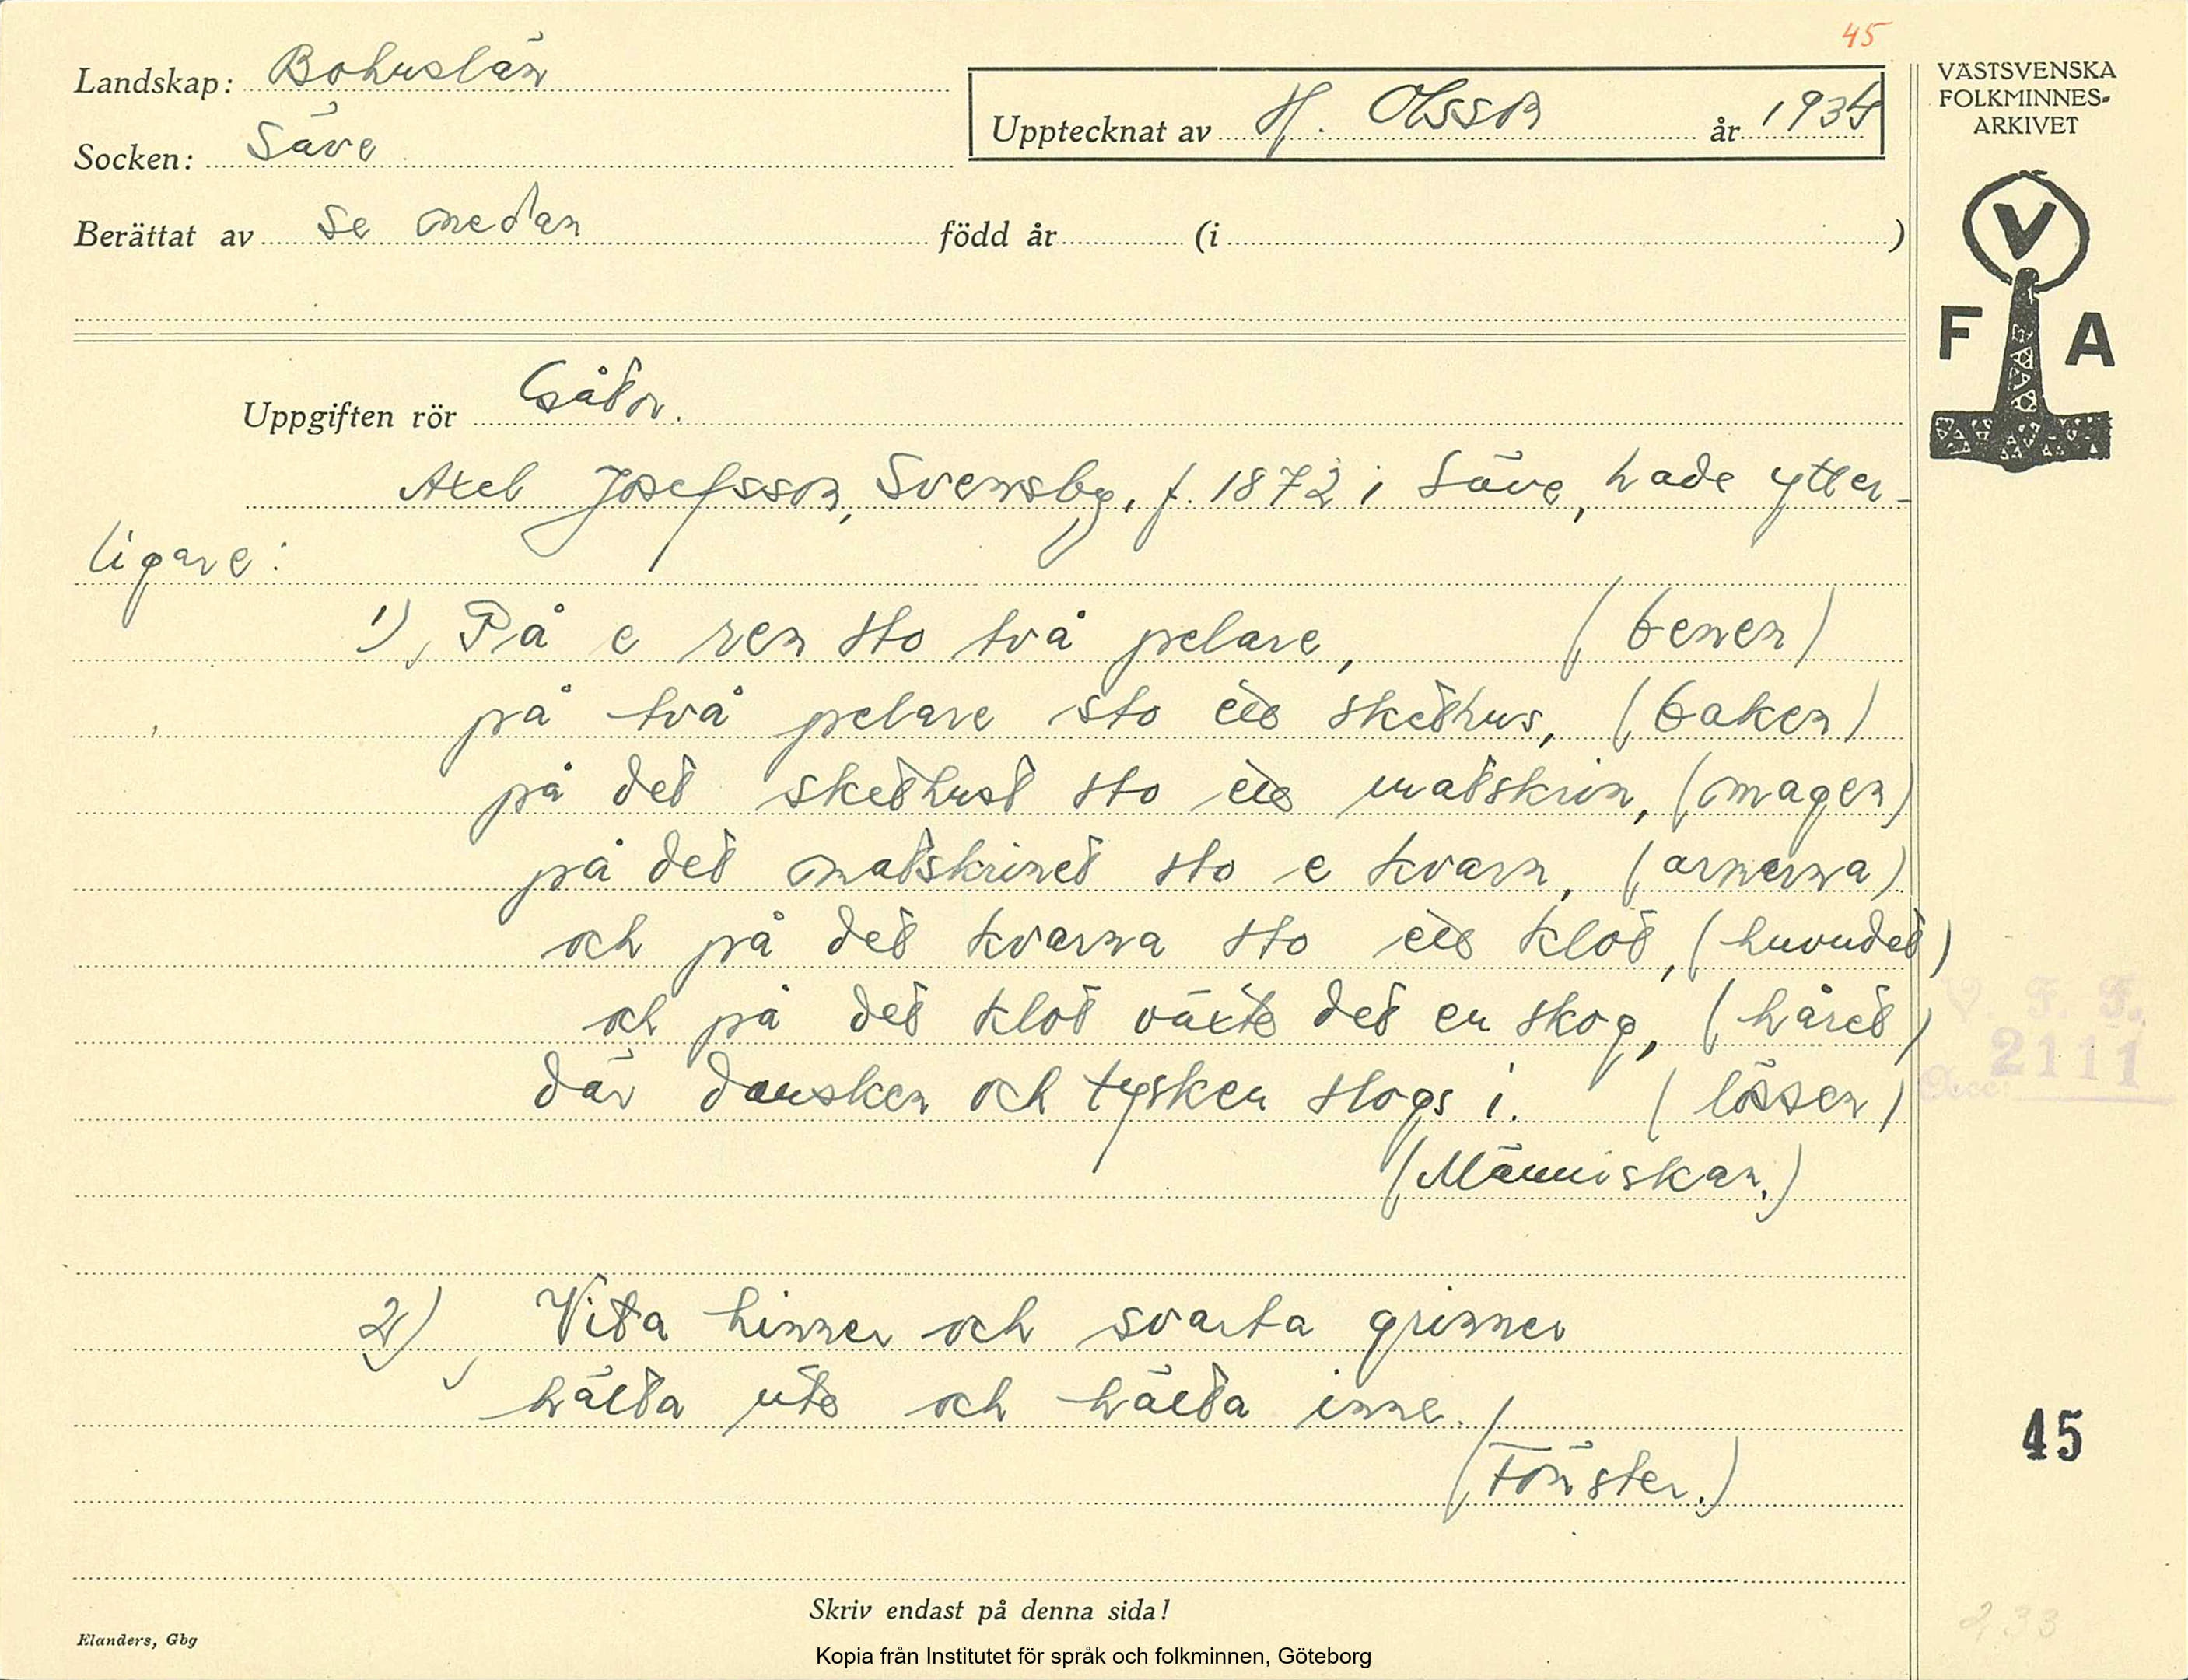 45
Landskap: Bohuslän
Socken: Säve
Upptecknat av H. Olsson år 1934
Berättat av se nedan född år (i )
VÄSTSVENSKA
FOLKMINNES-
ARKIVET
V
F A
Uppgiften rör Gåtor.
Axel Josefsson, Svensby, f. 1872 i Säve, hade ytter-
ligare:
1), På e ren sto två pelare, (benen)
på två pelare sto ett skethus, (baken)
på det skethust sto ett matskrin, (magen)
på det matskrinet sto e kvarn, (armarna)
och på det kvarna sto ett klot, (huvudet)
och på det klot växte det en skog, (håret)
där dansken och tysken slogs i. (lössen)
(Människan.)
V. F. F.
Acc: 2111
2), Vita hinner och svarta grinner
hälta ute och hälta inne.
(Fönster.)
45
Skriv endast på denna sida!
Elanders, Gbg
233
Kopia från Institutet för språk och folkminnen, Göteborg